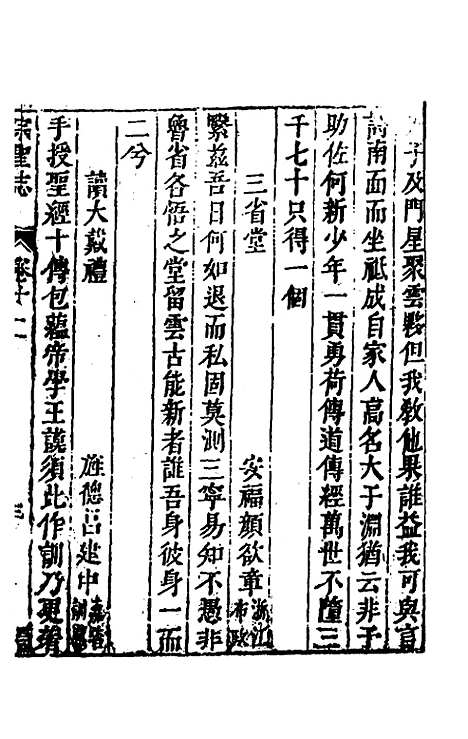 子及門星聚雲夥但我教他果誰益我可與言
詩南面而坐祗成自家人高名大于淵猶云非子
助佐何新少年一貫勇荷傳道傳經萬世不墮三
千七十只得一個
三省堂　安福顏欲章 浙江布政
繄茲吾日何如退而私固莫測三寧易知不愚非
魯省各悟之堂留雲古能新者誰吾身彼身一而
二兮
讀大戴禮　旌德呂建中 嘉
手授聖經十傳包蘊帝學王謨須此作訓乃更
宗聖志　卷十二　三